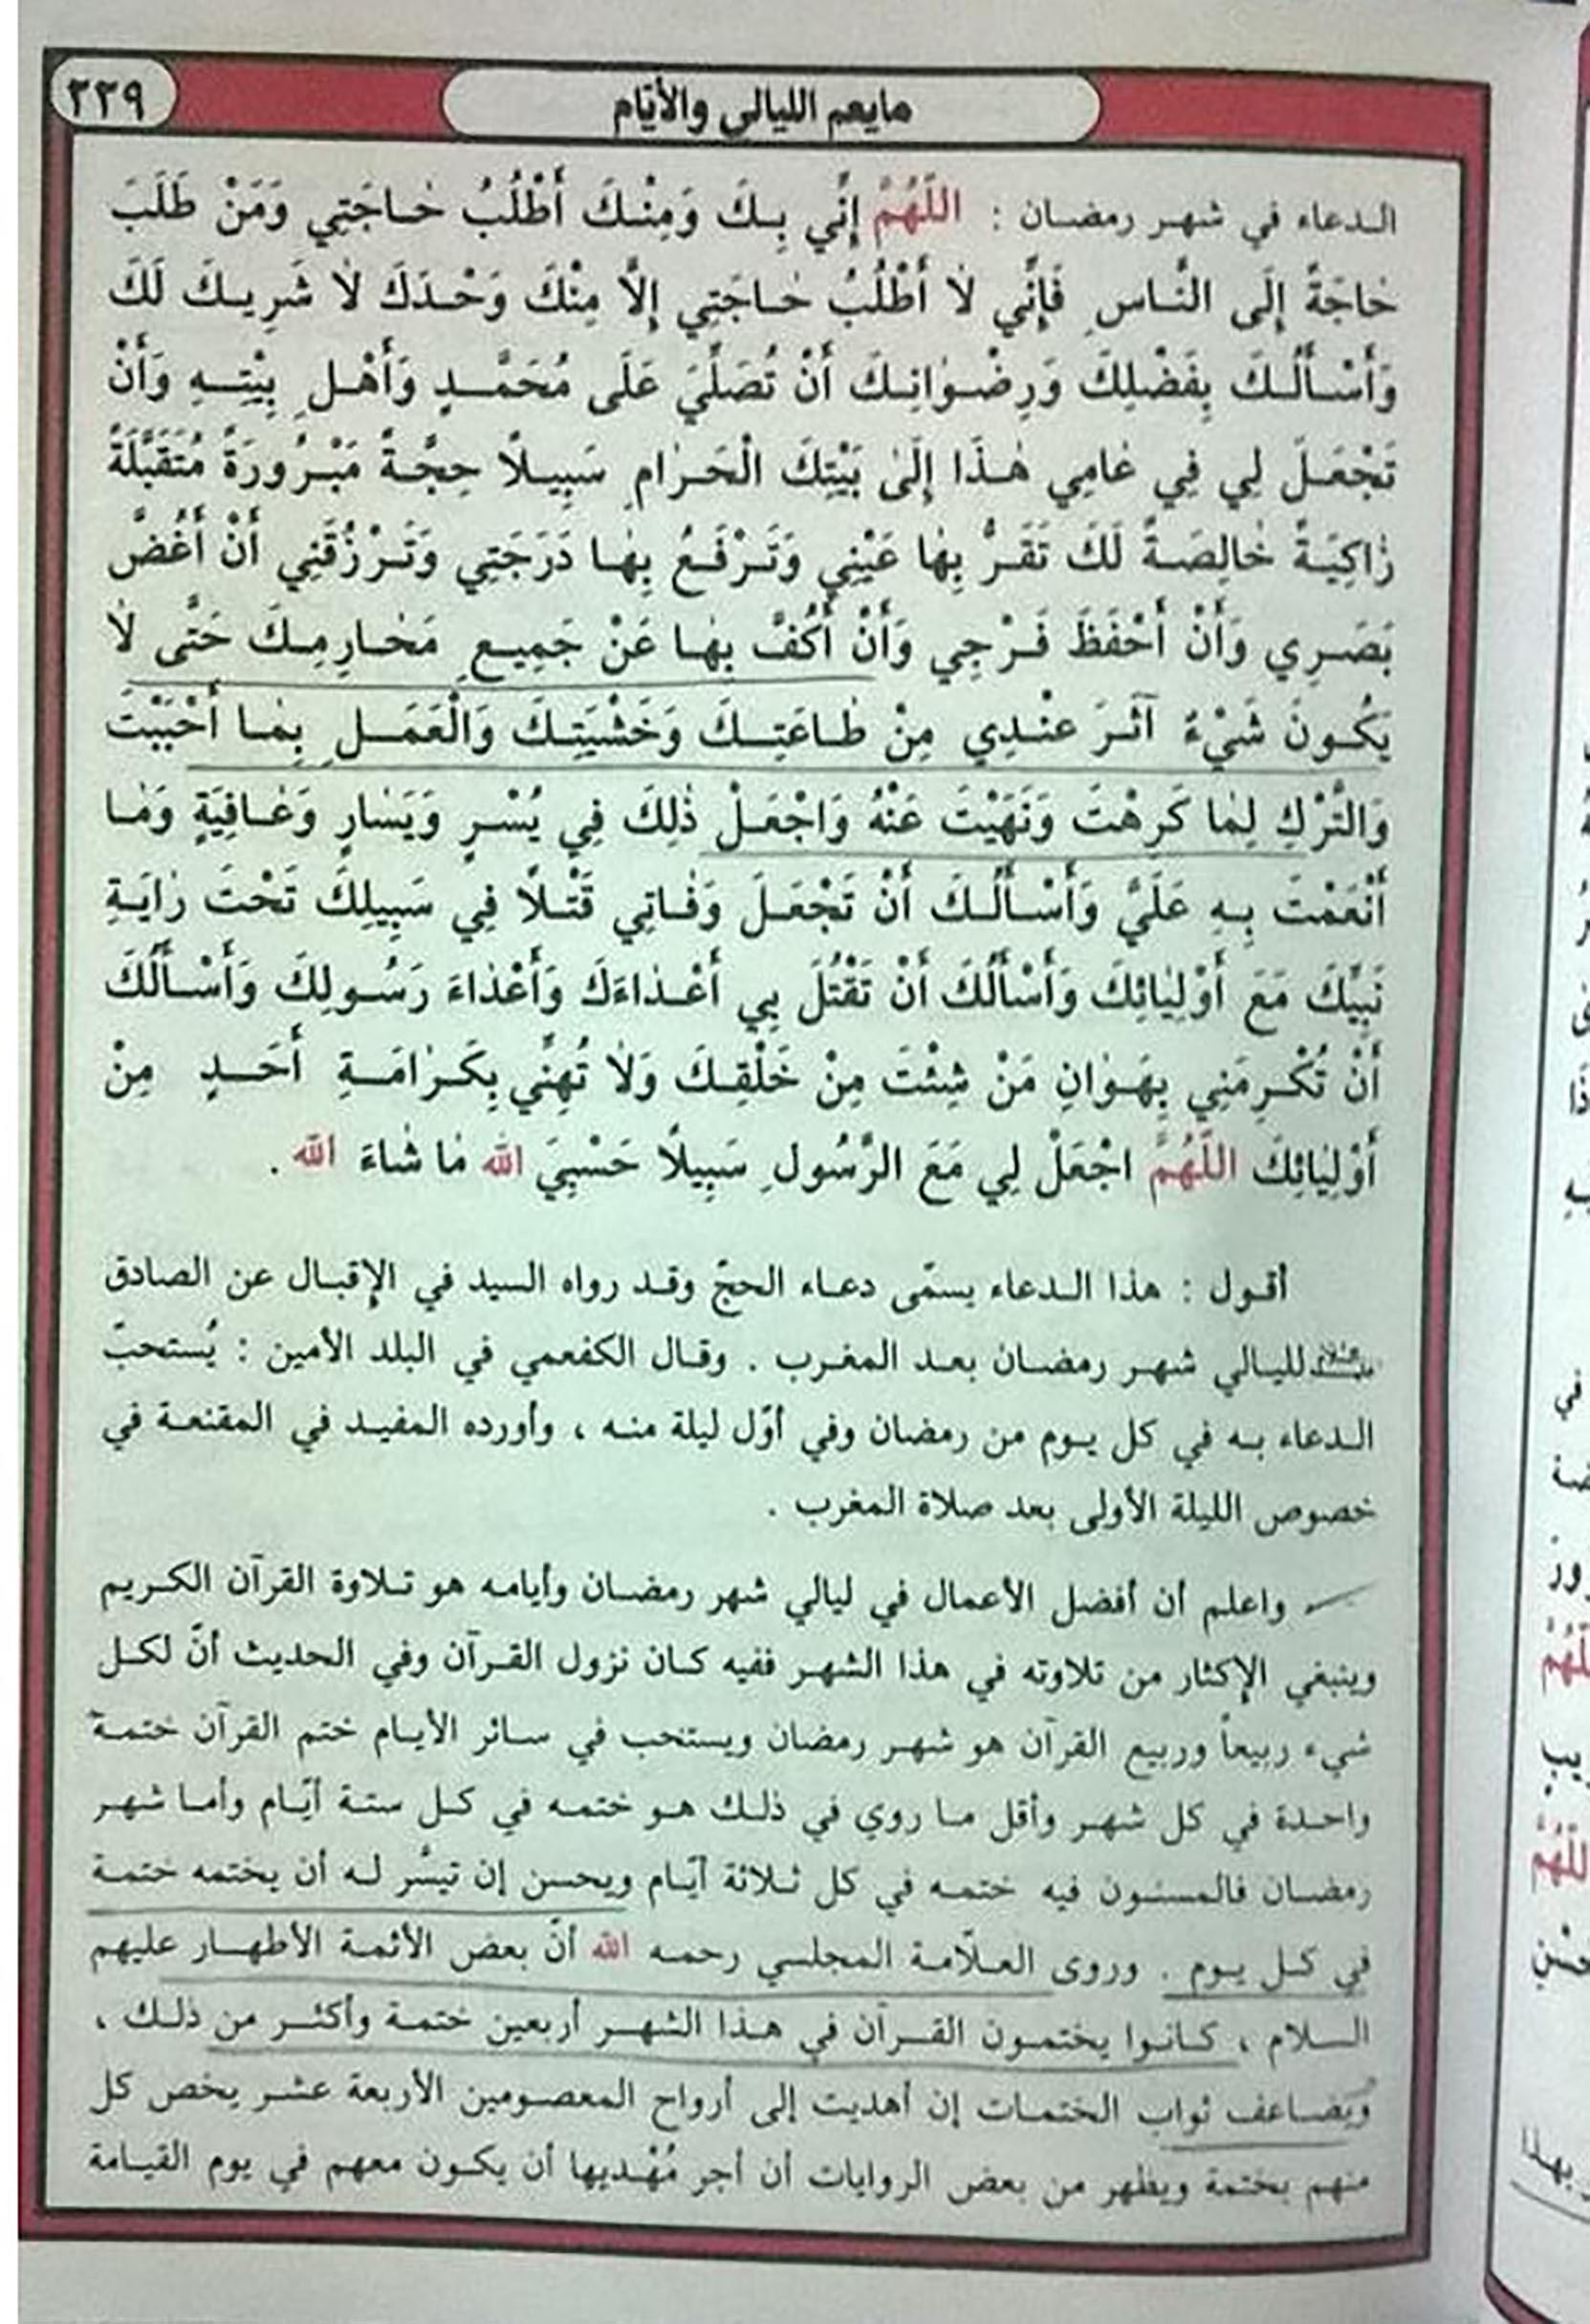 مايعم الليالي والأيّام
٢٣٩
الدعاء في شهر رمضان : اللَّهُمَّ إِنِّي بِكَ وَمِنْكَ أَطْلُبُ حَاجَتِي وَمَنْ طَلَبَ
حَاجَةً إِلَى النَّاسِ فَإِنِّي لَا أَطْلُبُ حَاجَتِي إِلَّا مِنْكَ وَحْدَكَ لَا شَرِيكَ لَكَ
وَأَسْأَلُكَ بِفَضْلِكَ وَرِضْوَانِكَ أَنْ تُصَلِّيَ عَلَى مُحَمَّدٍ وَأَهْلِ بِيْتِهِ وَأَنْ
تَجْعَلَ لِي فِي عَامِي هٰذَا إِلَىٰ بَيْتِكَ الْحَرَامِ سَبِيلًا حِجَّةً مَبْرُورَةً مُتَقَبَّلَةً
زَاكِيَةً خَالِصَةً لَكَ تَقَرُّ بِهَا عَيْنِي وَتَرْفَعُ بِهَا دَرَجَتِي وَتَرْزُقَنِي أَنْ أَغُضَّ
بَصَرِي وَأَنْ أَحْفَظَ فَرْجِي وَأَنْ أَكُفَّ بِهَا عَنْ جَمِيعِ مَحَارِمِكَ حَتَّى لَا
يَكُونَ شَيْءٌ آثَرَ عِنْدِي مِنْ طَاعَتِكَ وَخَشْيَتِكَ وَالْعَمَلِ بِمَا أَحْبَبْتَ
وَالتَّرْكِ لِمَا كَرِهْتَ وَنَهَيْتَ عَنْهُ وَاجْعَلْ ذٰلِكَ فِي يُسْرٍ وَيَسَارٍ وَعَافِيَةٍ وَمَا
أَنْعَمْتَ بِهِ عَلَيَّ وَأَسْأَلُكَ أَنْ تَجْعَلَ وَفَاتِي قَتْلًا فِي سَبِيلِكَ تَحْتَ رَايَةِ
نَبِيِّكَ مَعَ أَوْلِيَائِكَ وَأَسْأَلُكَ أَنْ تَقْتُلَ بِي أَعْدَاءَكَ وَأَعْدَاءَ رَسُولِكَ وَأَسْأَلُكَ
أَنْ تُكْرِمَنِي بِهَوَانِ مَنْ شِئْتَ مِنْ خَلْقِكَ وَلَا تُهِنِّي بِكَرَامَةِ أَحَدٍ مِنْ
أَوْلِيَائِكَ اللَّهُمَّ اجْعَلْ لِي مَعَ الرَّسُولِ سَبِيلًا حَسْبِيَ الله مَا شَاءَ الله .
أقول : هذا الدعاء يسمّى دعاء الحجّ وقد رواه السيد في الإقبال عن الصادق
عليه السلام لليالي شهر رمضان بعد المغرب . وقال الكفعمي في البلد الأمين : يُستحبّ
الدعاء به في كل يوم من رمضان وفي أوّل ليلة منه ، وأورده المفيد في المقنعة في
خصوص الليلة الأولى بعد صلاة المغرب .
واعلم أن أفضل الأعمال في ليالي شهر رمضان وأيامه هو تلاوة القرآن الكريم
وينبغي الإكثار من تلاوته في هذا الشهر ففيه كان نزول القرآن وفي الحديث أنّ لكل
شيء ربيعاً وربيع القرآن هو شهر رمضان ويستحب في سائر الأيام ختم القرآن ختمة
واحدة في كل شهر وأقل ما روي في ذلك هو ختمه في كل ستة أيّام وأما شهر
رمضان فالمسنون فيه ختمه في كل ثلاثة أيّام ويحسن إن تيسّر له أن يختمه ختمة
في كل يوم . وروى العلّامة المجلسي رحمه الله أنّ بعض الأئمة الأطهار عليهم
السلام ، كانوا يختمون القرآن في هذا الشهر أربعين ختمة وأكثر من ذلك ،
ويَضاعف ثواب الختمات إن أهديت إلى أرواح المعصومين الأربعة عشر يخص كل
منهم بختمة ويظهر من بعض الروايات أن أجر مُهْديها أن يكون معهم في يوم القيامة